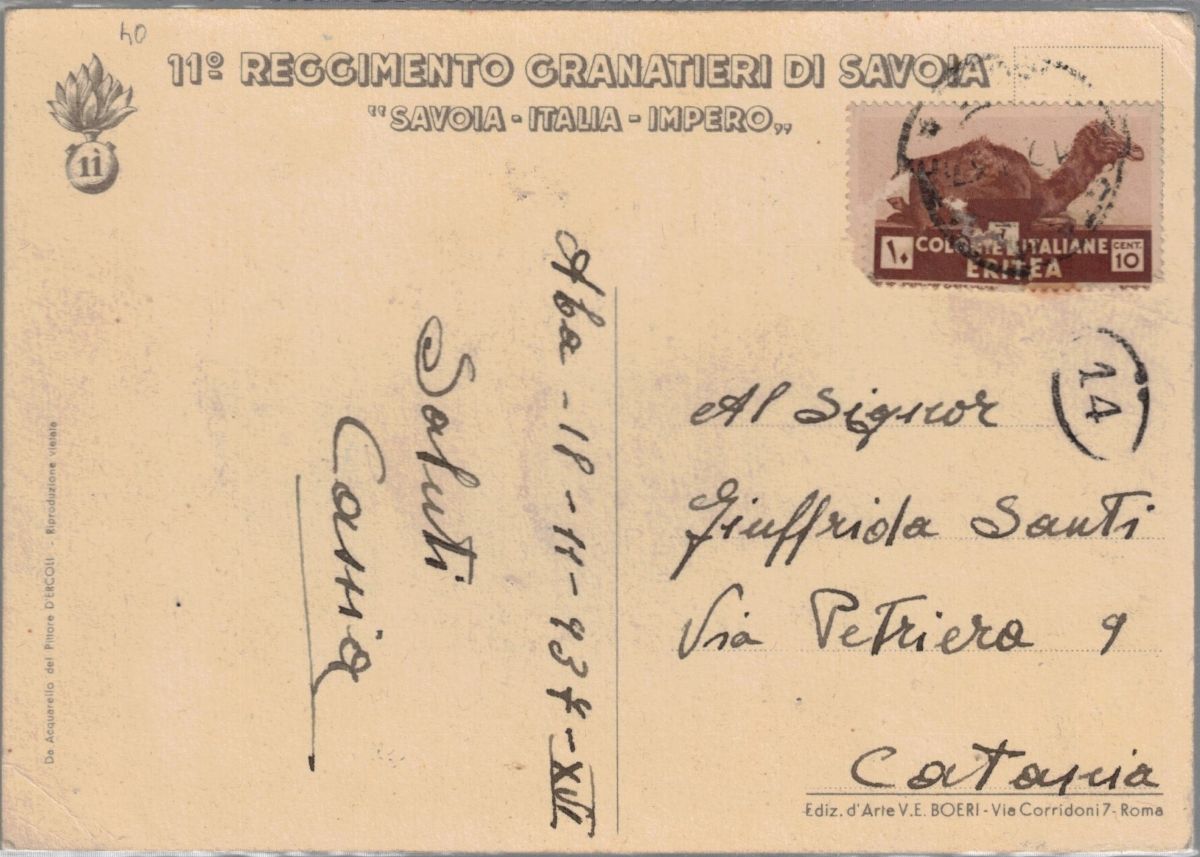 40
11º REGGIMENTO GRANATIERI DI SAVOIA
"SAVOIA - ITALIA - IMPERO"
11
١٠ COLONIE ITALIANE CENT. 10
ERITREA
14
Aba - 18 - 11 - 937 - XVI
Saluti
Al Signor
Giuffrida Santi
Via Petriera 9
Catania
Ediz. d'Arte V. E. BOERI - Via Corridoni 7 - Roma
Da Acquarello del Pittore D'ERCOLI - Riproduzione vietata